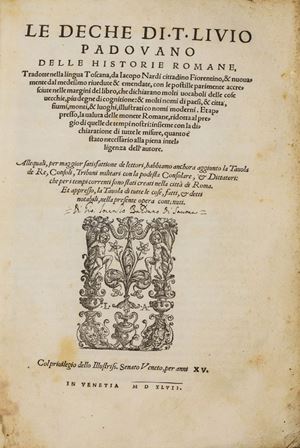 LE DECHE DI·T·LIVIO
PADOVANO
DELLE HISTORIE ROMANE,
Tradotte nella lingua Toscana, da Iacopo Nardi cittadino Fiorentino, & nuoua
mente dal medesimo riuedute & emendate, con le postille parimente accre
sciute nelle margini del libro, che dichiarano molti uocaboli delle cose
uecchie, piu degne di cognitione: & molti nomi di paesi, & città,
fiumi, monti, & luoghi, illustrati co nomi moderni. Et ap
presso, la ualuta delle monete Romane, ridotta al pre
gio di quelle de tempi nostri: insieme con la di
chiaratione di tutte le misure, quanto è
stato necessario alla piena intel
ligenza dell'autore.
Alle quali, per maggior satisfattione de lettori, habbiamo anchora aggiunto la Tauola
de Re, Consoli, Tribuni militari con la podestà Consolare, & Dittatori:
che per i tempi correnti sono stati creati nella città di Roma.
Et appresso, la Tauola di tutte le cose, fatti, & detti
notabili, nella presente opera contenuti.
L A
Col priuilegio dello Illustriss. Senato Veneto, per anni XV.
IN VENETIA M D XLVII.